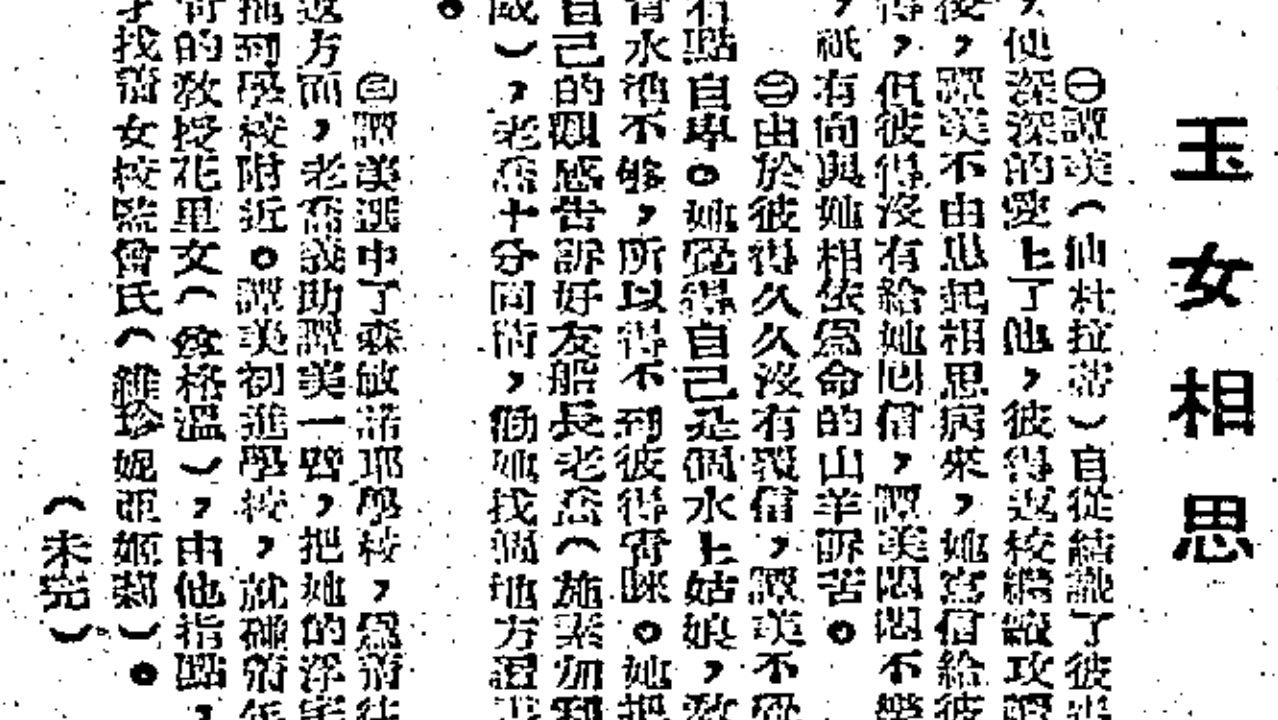 玉女相思
㊀譚美(仙杜拉蒂)自從結識了彼
,便深深的愛上了他,彼得返校繼續攻讀
後,譚美不由思起相思病來,她寫信給彼
得,但彼得沒有給她囘信,譚美悶悶不樂
,祇有向與她相依爲命的山羊訴苦。
㊁由於彼得久久沒有覆信,譚美不
有點自卑。她覺得自己是個水上姑娘,敎
育水準不够,所以得不到彼得靑睞。她把
自己的觀感告訴好友船長老喬(施素加利
成),老喬十分同情,勸她找個地方讀書
。
㊂譚美選中了森敏諾耶學校,爲着往
返方面,老喬義助譚美一臂,把她的浮
搖到學校附近。譚美初進學校,就碰着年
靑的敎授花里女(麥格溫),由他指點,
才找着女校監曾氏(維珍妮亞姬莉)。
(未完)